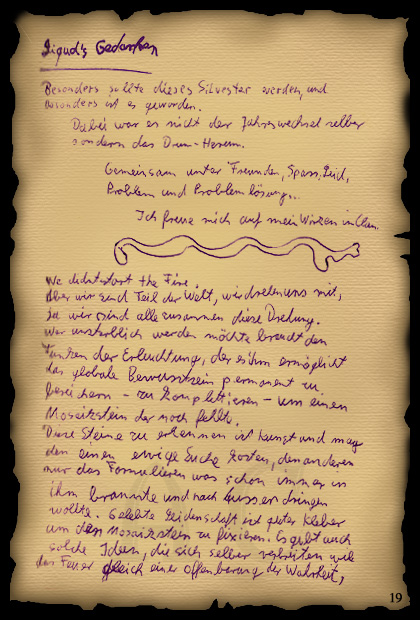 Sigud's Gedanken
Besonders sollte dieses Silvester werden, und
besonders ist es geworden.
Dabei war es nicht der Jahreswechsel selber
sondern das Drum-Herum.
Gemeinsam unter Freunden, Spass, Leid,
Problem und Problemlösung...
Ich freue mich auf mein Wirken im Clan.
We didnt start the Fire.
Aber wir sind Teil der Welt, wir drehen uns mit,
Ja wir sind alle zusammen diese Drehung.
Wer unsterblich werden möchte braucht den
Funken der Erleuchtung, der es ihm ermöglicht
das globale Bewusstsein permanent zu
bereichern - zu komplettieren - um einen
Mosaikstein der noch fehlt.
Diese Steine zu erkennen ist Kunst und mag
den einen ewige Suche kosten, den anderen
nur das Formulieren was schon immer in
ihm brannte und nach aussen dringen
wollte. Gelebte Leidenschaft ist guter Kleber
um den Mosaikstein zu fixieren. Es gibt auch
solche Ideen, die sich selber verbreiten wie
das Feuer gleich einer Offenbarung der Wahrheit,
19